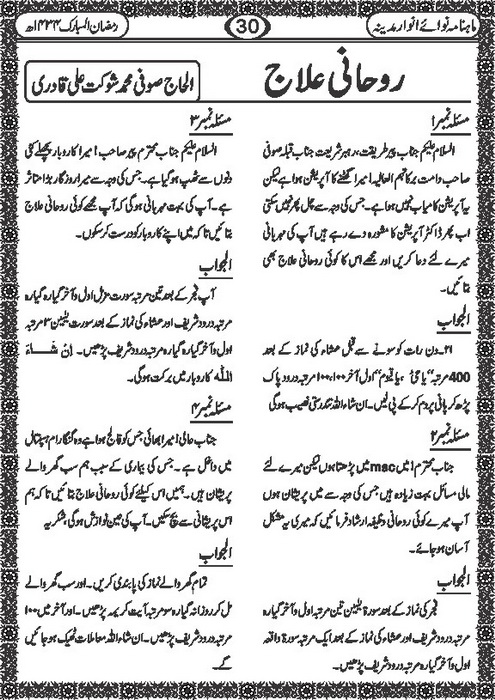 ماہنامہ نوائے انوار مدینہ
30
رمضان المبارک ۱۴۳۴ھ
روحانی علاج
الحاج صوفی محمد شوکت علی قادری
مسئلہ نمبر ۱
السلام علیکم جناب پیر طریقت، رہبر شریعت جناب قبلہ صوفی
صاحب دامت برکاتہم العالیہ! میرا گھٹنے کا آپریشن ہوا ہے لیکن
یہ آپریشن کامیاب نہیں ہوا ہے۔ جس کی وجہ سے چل پھر نہیں سکتی
اب پھر ڈاکٹر آپریشن کا مشورہ دے رہے ہیں آپ کی مہربانی
میرے لئے دعا کریں اور مجھے اس کا کوئی روحانی علاج بھی
بتائیں۔
الجواب
۲۱۔ دن رات کو سونے سے قبل عشاء کی نماز کے بعد
400 مرتبہ "یا حیّ، یا قیوم" اول آخر ۱۰۰،۱۰۰ مرتبہ درود پاک
پڑھ کر پانی پر دم کر کے پی لیں۔ ان شاء اللہ تندرستی نصیب ہوگی
مسئلہ نمبر ۲
جناب محترم! میں msc میں پڑھتا ہوں لیکن میرے لئے
مالی مسائل بہت زیادہ ہیں جس کی وجہ سے میں پریشان ہوں
آپ میرے کوئی روحانی وظیفہ ارشاد فرمائیں کہ میری یہ مشکل
آسان ہو جائے۔
الجواب
فجر کی نماز کے بعد سورۃ یٰسین تین مرتبہ اول و آخر گیارہ
مرتبہ درود شریف اور عشاء کی نماز کے بعد ایک مرتبہ سورۃ واقعہ
اول و آخر گیارہ مرتبہ درود شریف پڑھیں۔
مسئلہ نمبر ۳
السلام علیکم جناب محترم پیر صاحب! میرا کاروبار پچھلے کئی
دنوں سے ٹھپ ہو گیا ہے۔ جس کی وجہ سے میرا روزگار بڑا متاثر
ہے۔ آپ کی بہت مہربانی ہوگی کہ آپ مجھے کوئی روحانی علاج
بتائیں تاکہ میں اپنے کاروبار کو درست کر سکوں۔
الجواب
آپ فجر کے بعد تین مرتبہ سورت مزمل اول و آخر گیارہ گیارہ
مرتبہ درود شریف اور عشاء کی نماز کے بعد سورت یٰسین ۳ مرتبہ
اول و آخر گیارہ گیارہ مرتبہ درود شریف پڑھیں۔ اِنْ شَاءَ
اللّٰہ کاروبار میں برکت ہوگی۔
مسئلہ نمبر ۴
جناب عالی! میرا بھائی جس کو فالج ہوا ہے وہ گنگا رام ہسپتال
میں داخل ہے۔ جس کی بیماری کے سبب ہم سب گھر والے
پریشان ہیں۔ ہمیں اس کیلئے کوئی روحانی علاج بتائیں تاکہ ہم
اس پریشانی سے بچ سکیں۔ آپ کی عین نوازش ہوگی، شکریہ
الجواب
تمام گھر والے نماز کی پابندی کریں۔ اور سب گھر والے
مل کر روزانہ گیارہ سو مرتبہ آیت کریمہ پڑھیں۔ اور آخر میں ۱۰۰
مرتبہ درود شریف پڑھیں۔ ان شاء اللہ معاملات ٹھیک ہو جائیں
گے۔